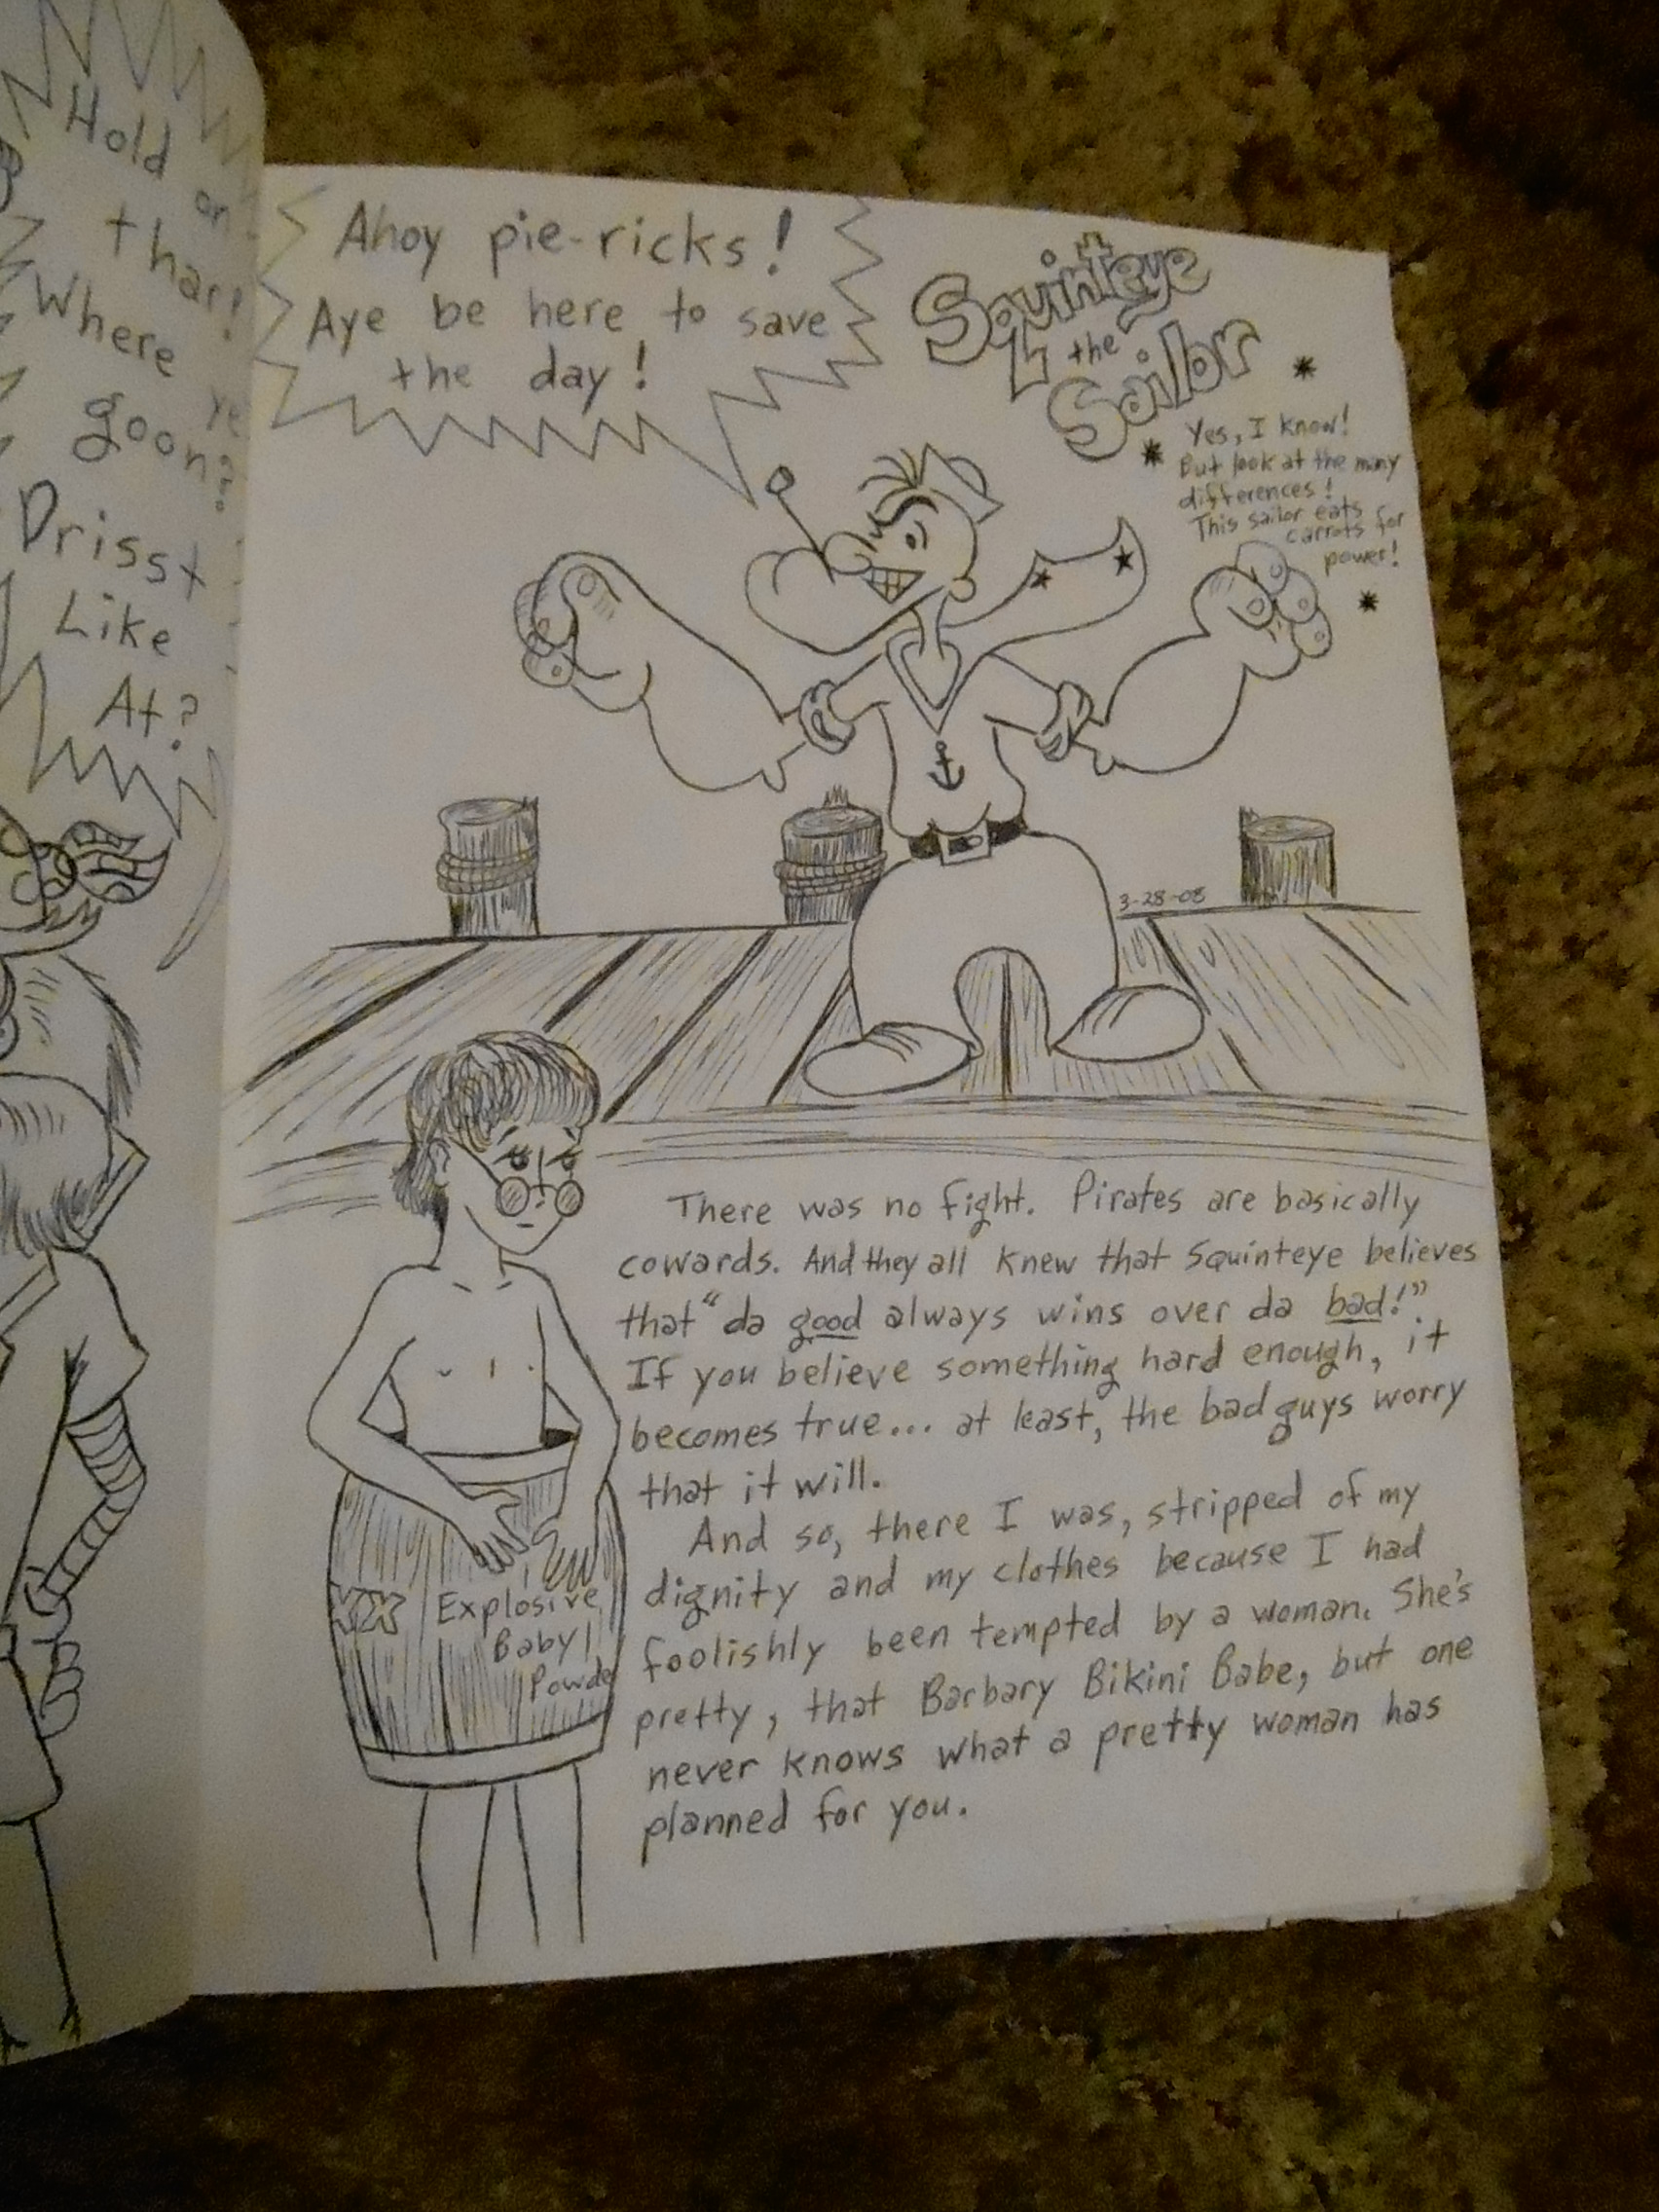 Hold on
thar!
Where ye
goon?
Drisst
Like
At?
Ahoy pie-ricks!
Aye be here to save
the day!
Squinteye
the
Sailor
Yes, I know!
But look at the many
differences!
This sailor eats
carrots for
power!
3-28-08
There was no fight. Pirates are basically
cowards. And they all knew that Squinteye believes
that "da good always wins over da bad!"
If you believe something hard enough, it
becomes true... at least, the bad guys worry
that it will.
And so, there I was, stripped of my
dignity and my clothes because I had
foolishly been tempted by a woman. She's
pretty, that Barbary Bikini Babe, but one
never knows what a pretty woman has
planned for you.
XX Explosive
Baby
Powde